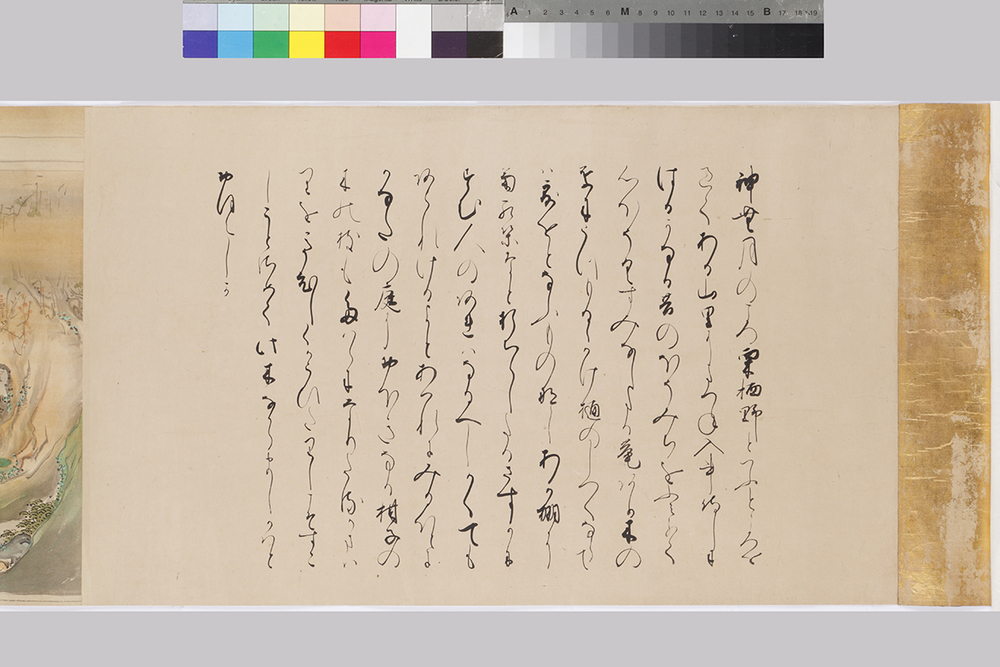 A 1 2 3 4 5 6 M 8 9 10 11 12 13 14 15 B 17 18 19
神無月のころ栗栖野といふところを
すきてある山里にたつね入事侍しに
はるかなる苔のほそみちをふみわけて
心ほそくすみなしたる庵あり木の
葉にうつもるゝかけ樋のしつくならて
は露をとなふものなしあか棚に
菊紅葉なとおりちらしたるさすかに
すむ人のあれはなるへしかくても
あられけるよとあはれにみるほとに
かなたの庭におほきなる柑子の
木の枝もたわゝになりたるかまは
りをきひしくかこひたりしこそすこ
しことさめて此木なからましかはと
おほえしか